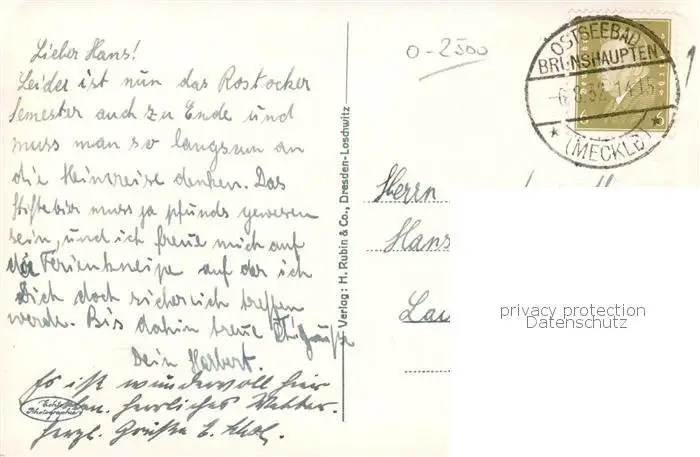 Lieber Hans!
Leider ist nun das Rostocker
Semester auch zu Ende und
muss man so langsam an
die Heimreise denken. Das
Stiftebier muss ja pfunds gewesen
sein, und ich freue mich auf
die Ferienkneipe auf der ich
Dich doch sicherlich treffen
werde. Bis dahin treue
Dein Herbert.
Es ist wundervoll hier
herrliches Wetter.
Herzl. Grüße
Echte
Photographie
Verlag: H. Rubin & Co., Dresden-Loschwitz
0-2500
OSTSEEBAD
BRUNSHAUPTEN
-6.8.32. 14-15
* (MECKLB) *
6 6
Herrn
Hans
privacy protection
Datenschutz